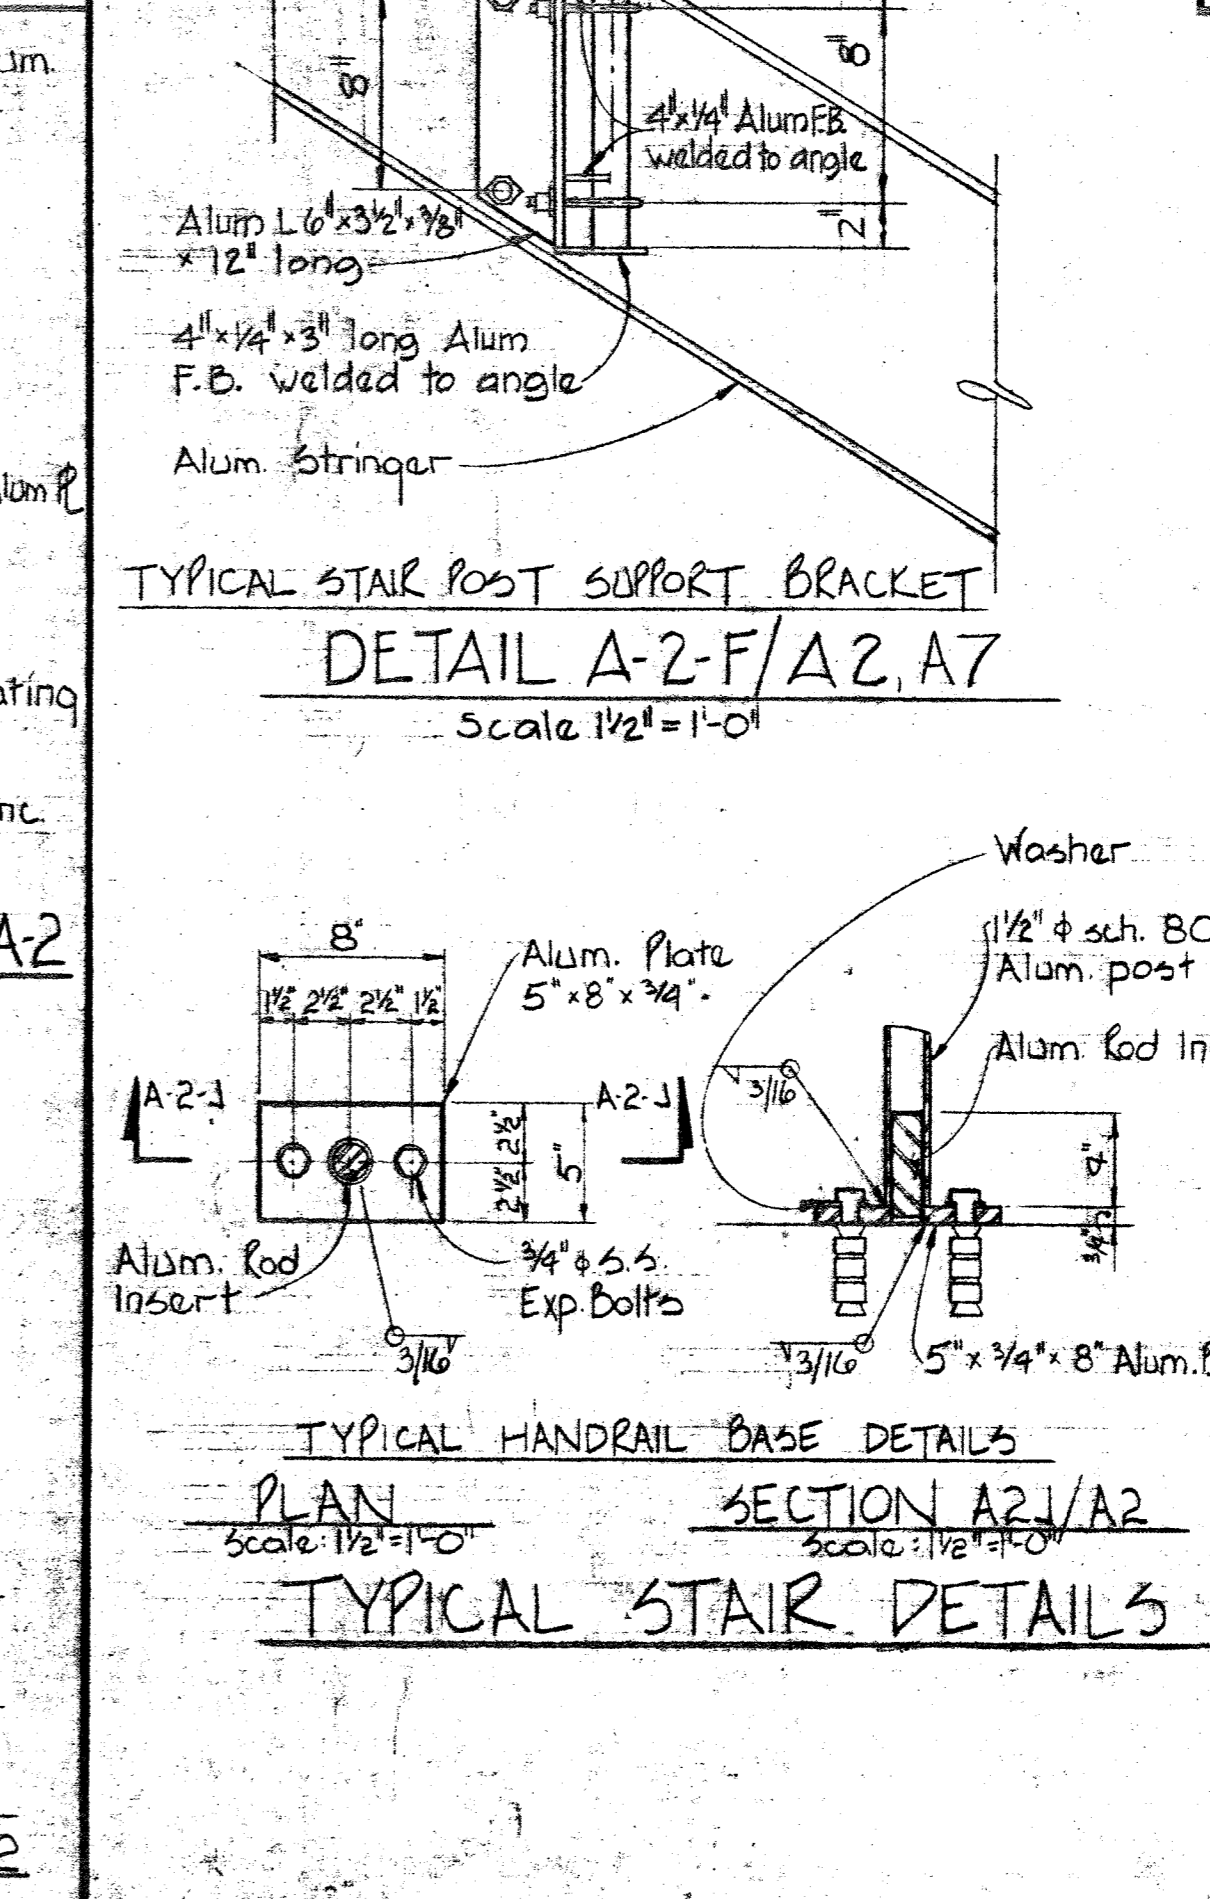 um.
8"
8"
4"x1/4" Alum F.B.
welded to angle
2"
Alum L 6"x3½"x3/8"
x 12" long
4"x1/4"x3" long Alum
F.B. welded to angle
Alum. Stringer
TYPICAL STAIR POST SUPPORT BRACKET
DETAIL A-2-F/A2, A7
Scale 1½" = 1'-0"
ating
nc.
A-2
Washer
1½" ϕ sch. 80
Alum. post
Alum. Rod In
8"
1½" 2½" 2½" 1½"
Alum. Plate
5" x 8" x 3/4".
A-2-J
A-2-J
2½" 2½"
5"
3/16
4"
3/4"
Alum. Rod
Insert
3/4" ϕ S.S.
Exp. Bolts
3/16
3/16
5" x 3/4" x 8" Alum.
TYPICAL HANDRAIL BASE DETAILS
PLAN
Scale: 1½"=1'-0"
SECTION A2J/A2
Scale: 1½"=1'-0"
TYPICAL STAIR DETAILS